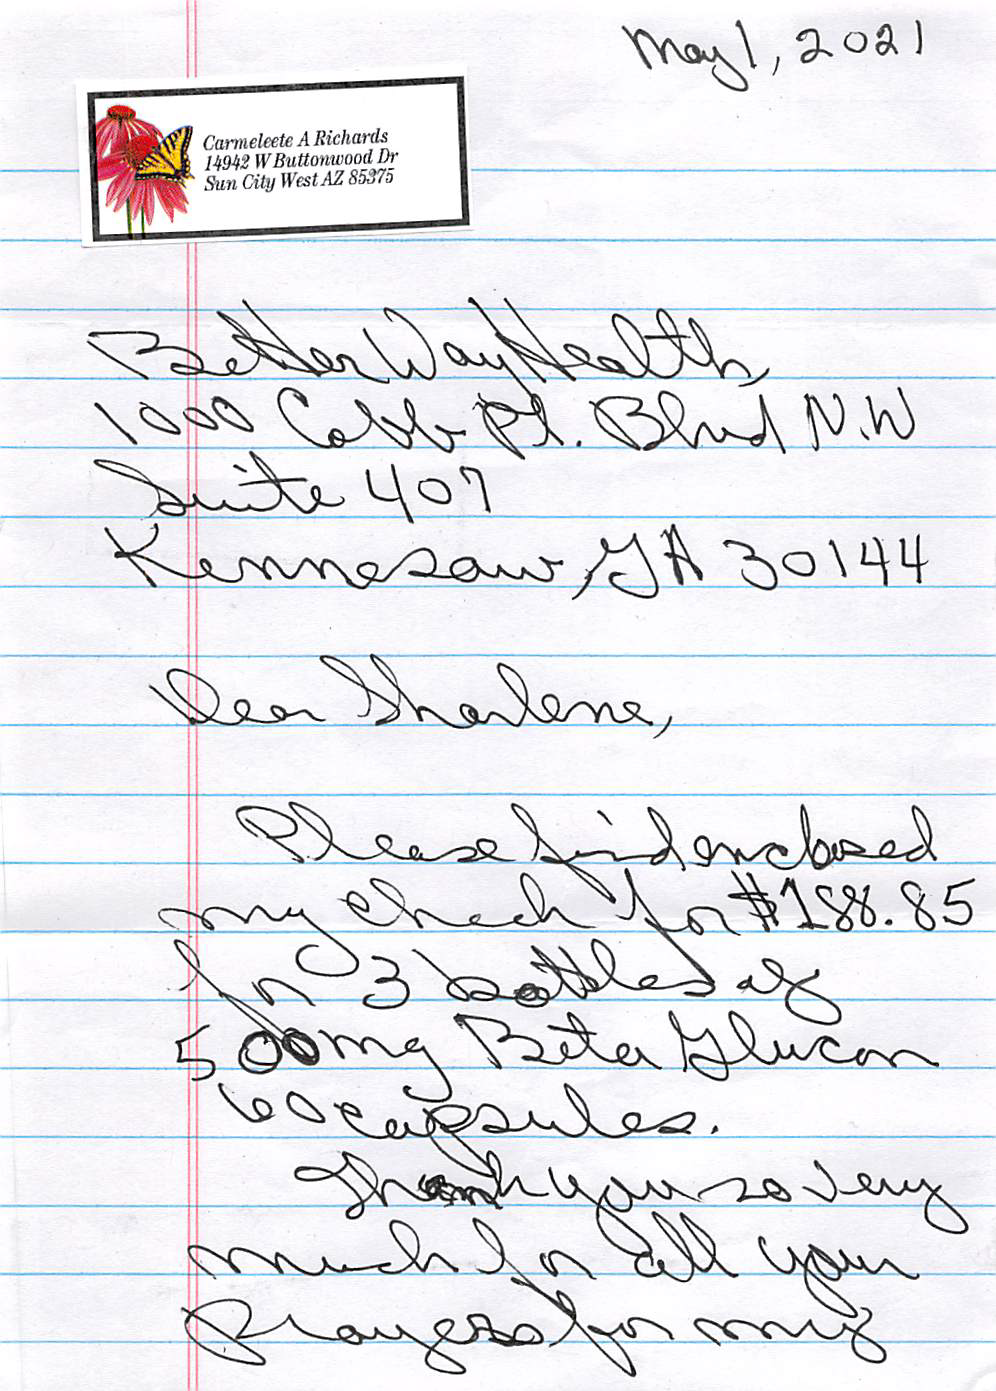 May 1, 2021
Carmeleete A Richards
14942 W Buttonwood Dr
Sun City West AZ 85375
Better Way Health,
1000 Cobb Pl. Blvd N.W
Suite 407
Kennesaw, GA 30144
Dear Sharlene,
Please find enclosed
my check for $188.85
for 3 bottles of
500mg Beta Glucan
60 capsules.
Thank you so very
much for all your
Prayers for my